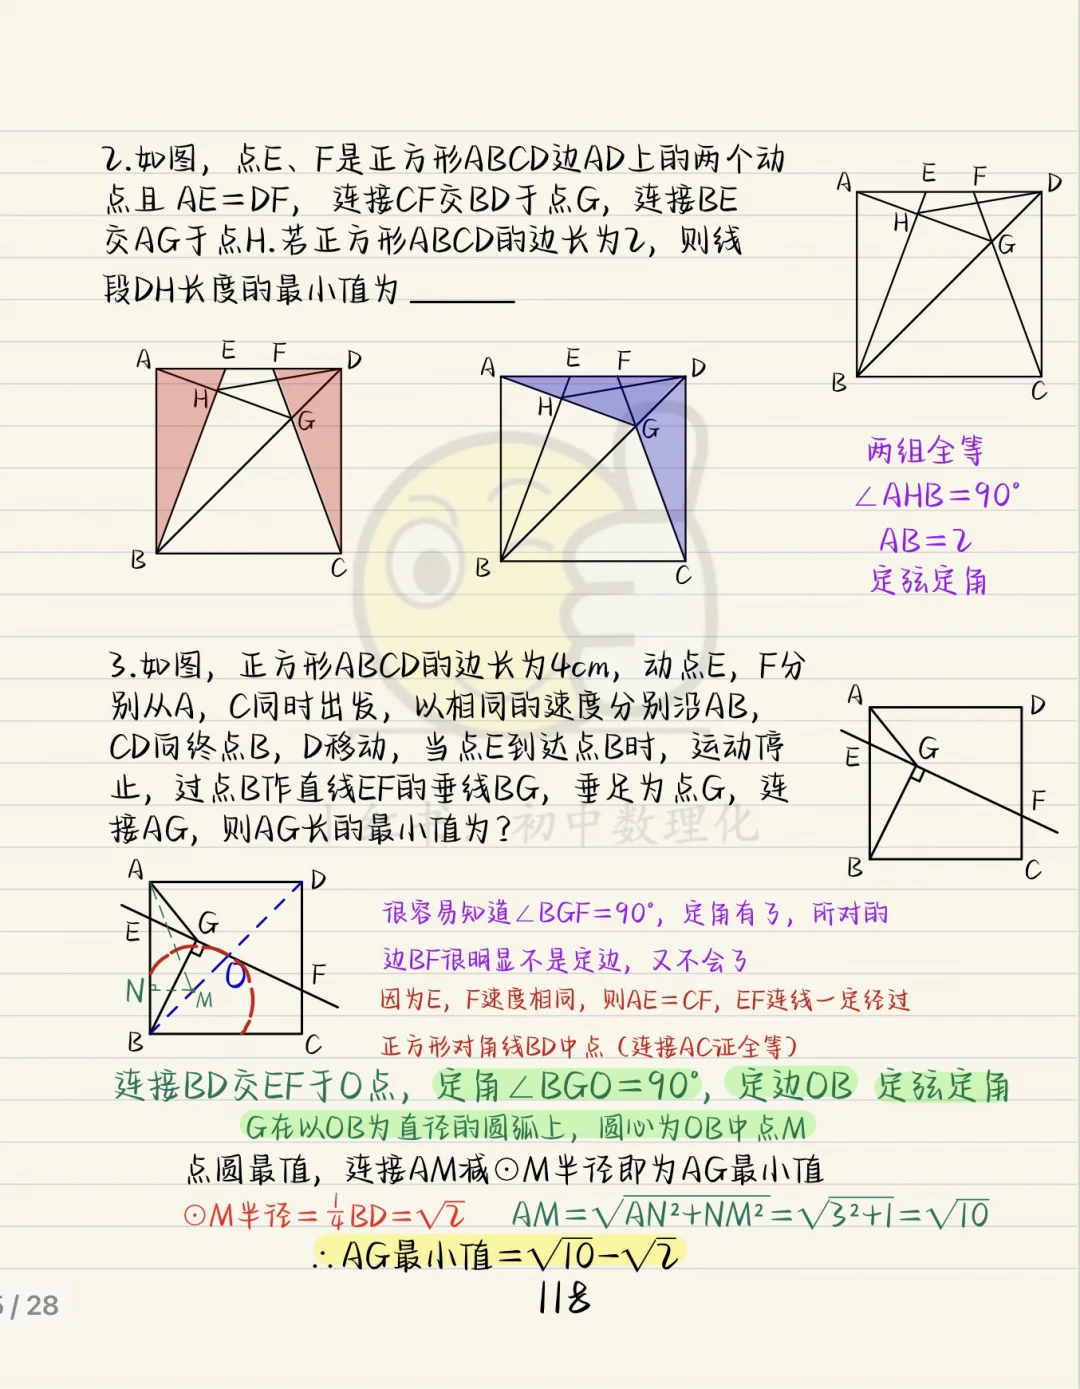 2.如图，点E、F是正方形ABCD边AD上的两个动
点且 AE=DF， 连接CF交BD于点G，连接BE
交AG于点H.若正方形ABCD的边长为2，则线
段DH长度的最小值为 ______
A E F D
H
G
B C
A E F D
H
G
B C
A E F D
H
G
B C
两组全等
∠AHB=90°
AB=2
定弦定角
3.如图，正方形ABCD的边长为4cm，动点E，F分
别从A，C同时出发，以相同的速度分别沿AB，
CD向终点B，D移动，当点E到达点B时，运动停
止，过点B作直线EF的垂线BG，垂足为点G，连
接AG，则AG长的最小值为？
A D
E G
F
B C
初中数理化
A D
E G
O F
N M
B C
很容易知道∠BGF=90°，定角有了，所对的
边BF很明显不是定边，又不会了
因为E，F速度相同，则AE=CF，EF连线一定经过
正方形对角线BD中点（连接AC证全等）
连接BD交EF于O点，定角∠BGO=90°，定边OB 定弦定角
G在以OB为直径的圆弧上，圆心为OB中点M
点圆最值，连接AM减⊙M半径即为AG最小值
⊙M半径=1/4BD=√2 AM=√AN²+NM²=√3²+1=√10
∴AG最小值=√10-√2
118
5/28